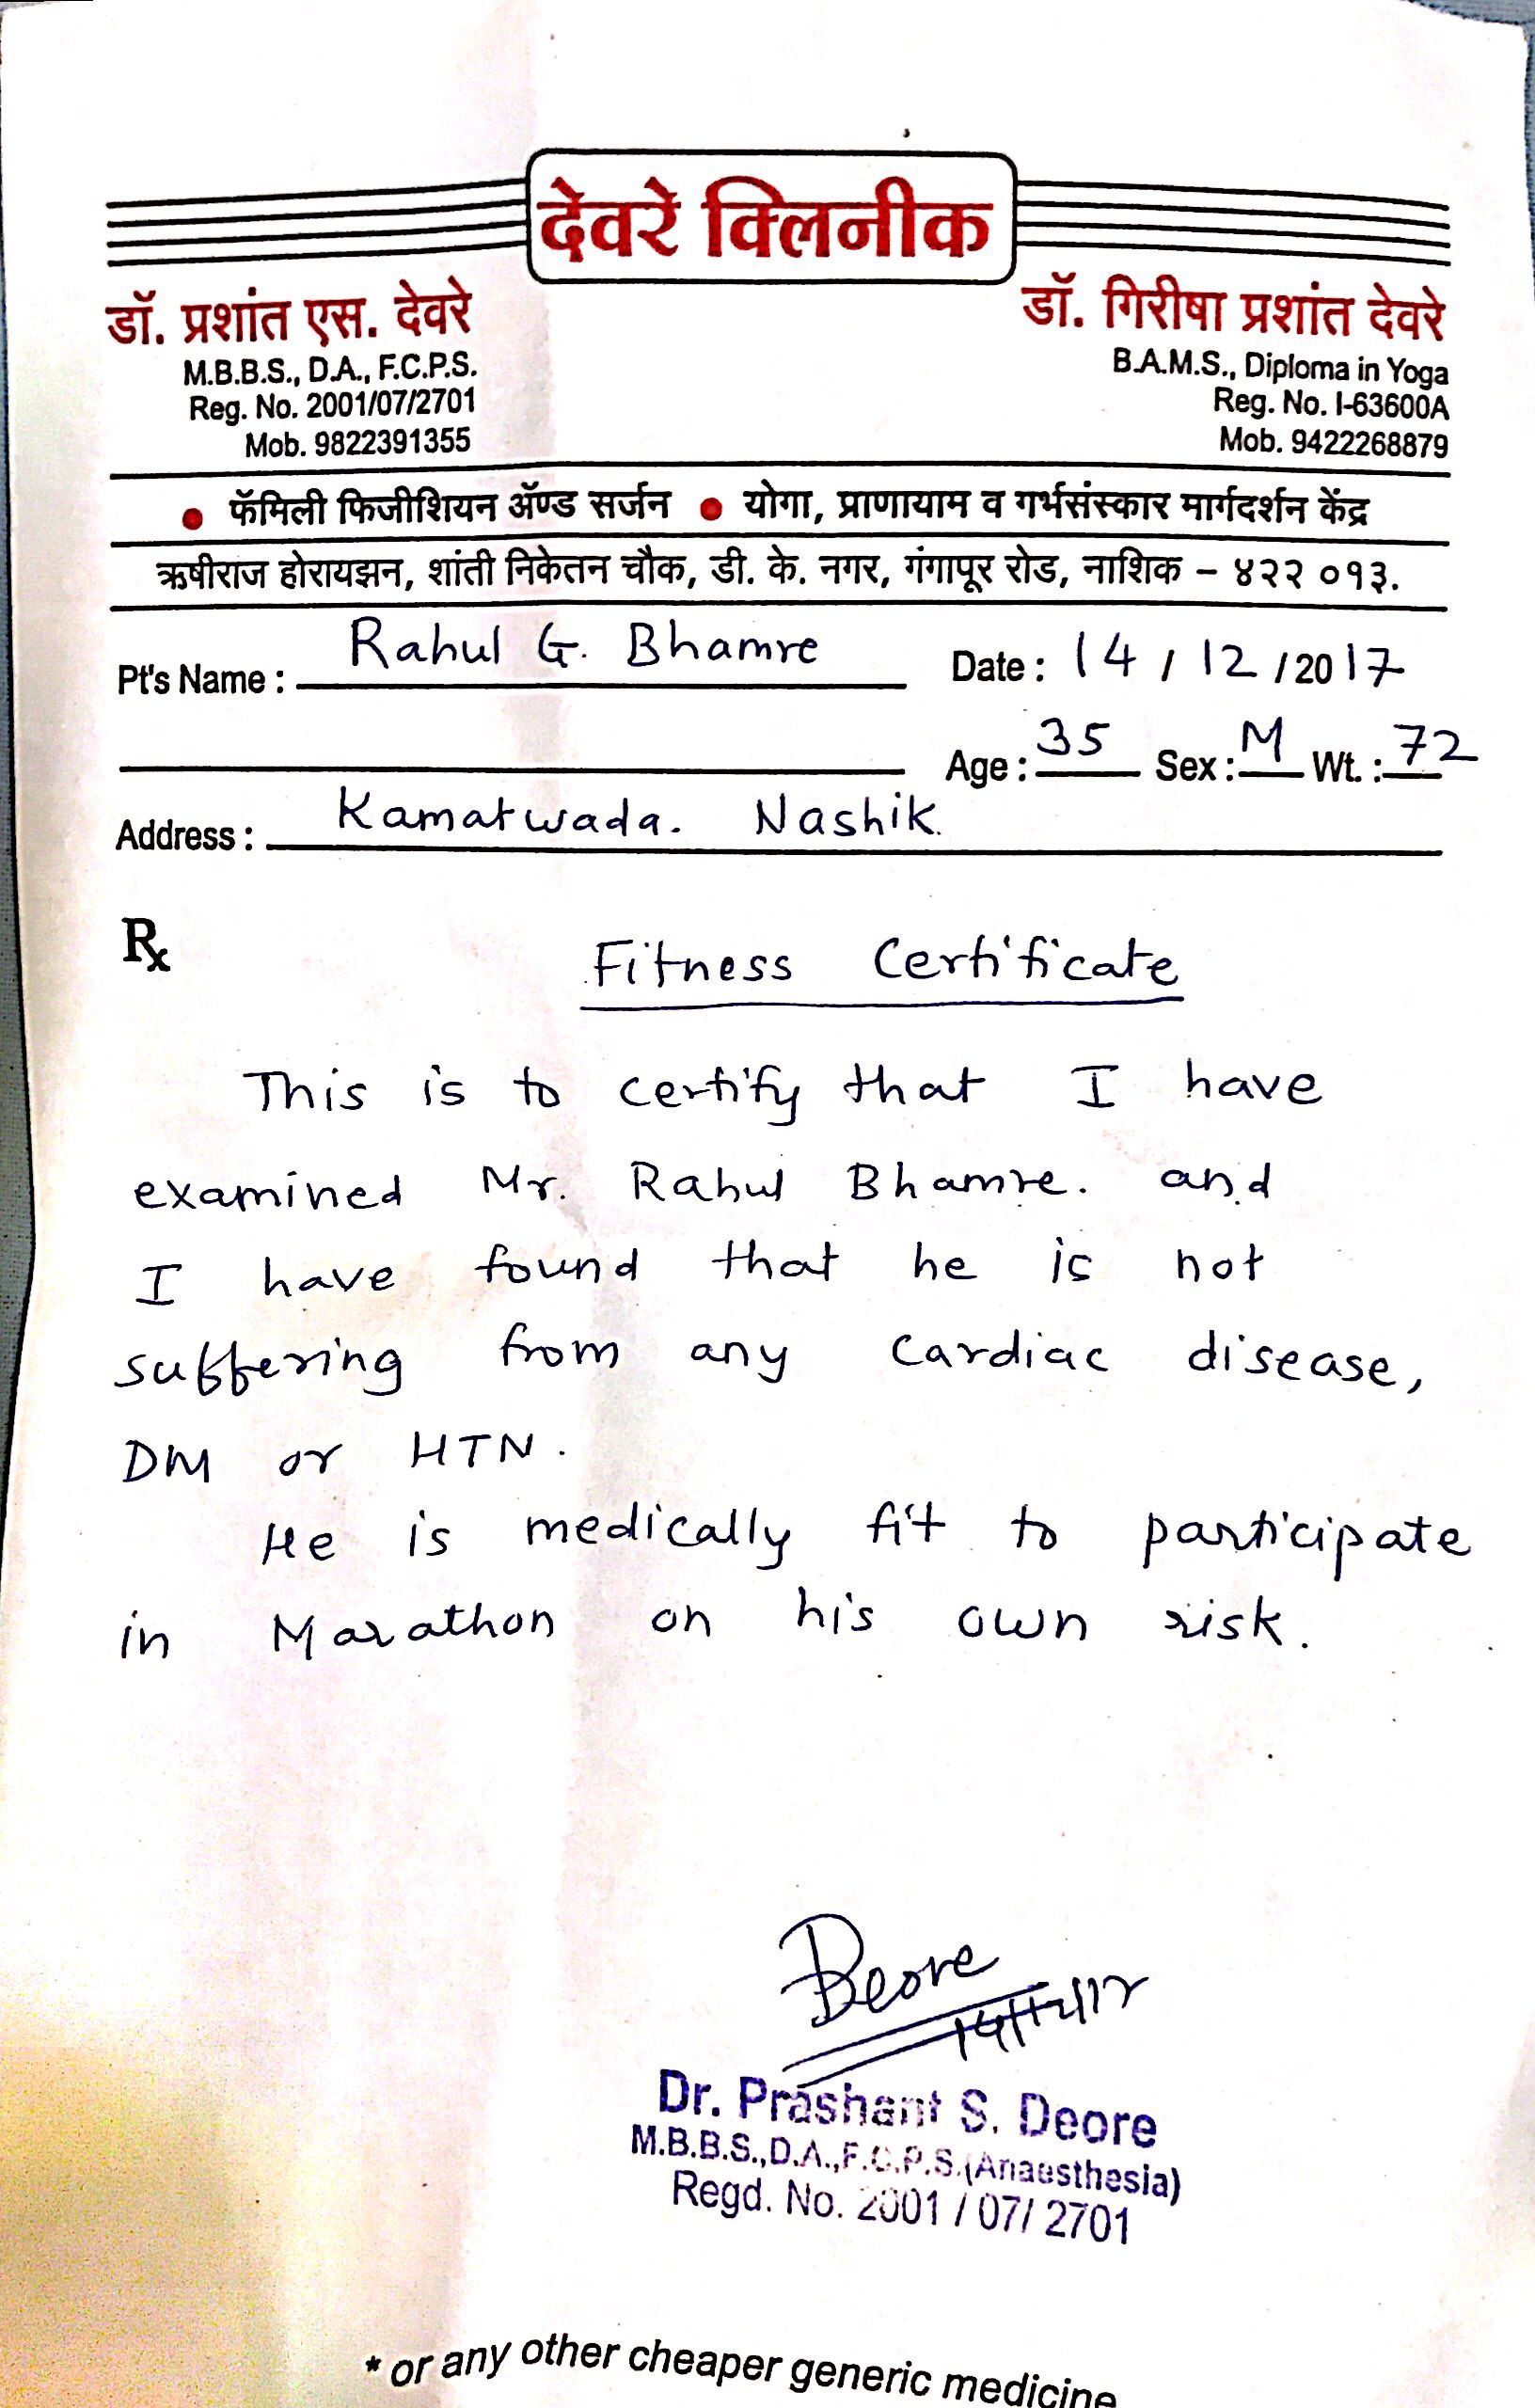 देवरे क्लिनीक
डॉ. प्रशांत एस. देवरे
M.B.B.S., D.A., F.C.P.S.
Reg. No. 2001/07/2701
Mob. 9822391355
डॉ. गिरीषा प्रशांत देवरे
B.A.M.S., Diploma in Yoga
Reg. No. I-63600A
Mob. 9422268879
• फॅमिली फिजीशियन ॲण्ड सर्जन • योगा, प्राणायाम व गर्भसंस्कार मार्गदर्शन केंद्र
ऋषीराज होरायझन, शांती निकेतन चौक, डी. के. नगर, गंगापूर रोड, नाशिक – ४२२ ०१३.
Pt's Name : Rahul G. Bhamre Date : 14 / 12 / 2017
Age : 35 Sex : M Wt. : 72
Address : Kamatwada. Nashik.
Rx
Fitness Certificate
This is to certify that I have
examined Mr. Rahul Bhamre. and
I have found that he is not
suffering from any cardiac disease,
DM or HTN.
He is medically fit to participate
in Marathon on his own risk.
Deore
Dr. Prashant S. Deore
M.B.B.S.,D.A.,F.C.P.S.(Anaesthesia)
Regd. No. 2001 / 07/ 2701
* or any other cheaper generic medicine